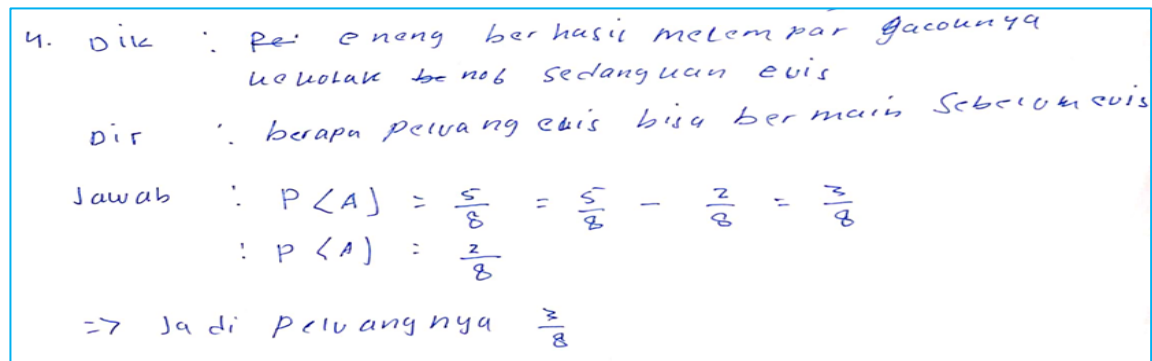 4. Dik : eneng berhasil melempar gacounnya
kekotak no6 sedangkan evis
Dit : berapa peluang evis bisa bermain sebelum evis
Jawab : P(A) = 5/8 = 5/8 - 2/8 = 3/8
: P(A) = 2/8
=> Jadi peluangnya 3/8